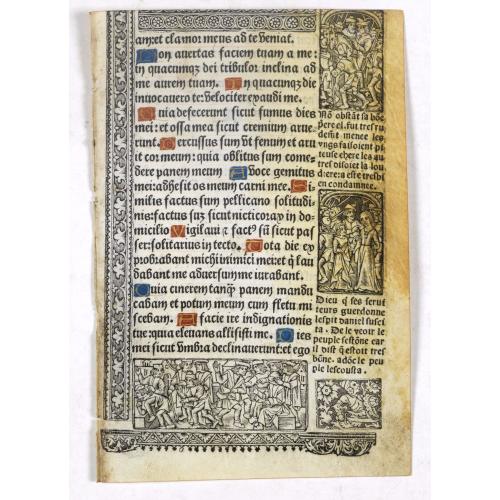 am: et clamor meus ad te veniat.
Non avertas faciem tuam a me:
in quacunqz dei tribulor inclina ad
me aurem tuam. In quacunqz die
invocavero te: velociter exaudi me.
Quia defecerunt sicut fumus dies
mei: et ossa mea sicut cremium arue
runt. Percussus sum vt fenum et aru
it cor meum: quia oblitus sum come-
dere panem meum A voce gemitus
mei: adhesit os meum carni mee. Si-
milis factus sum pellicano solitudi-
nis: factus suz sicut nicticorax in do-
micilio Vigilaui et fact⁹ sū sicut pas
ser: solitarius in tecto. Tota die ex
probrabant michi inimici mei: et q̄ lau
dabant me adversum me iurabant.
Quia cinerem tanq̄ panem mandu
cabam et potum meum cum fletu mi
scebam. A facie ire indignationis
tue: quia elevans allisisti me. Dies
mei sicut vmbra declinaverunt: et ego
Nō obstāt sa bōe
dem̄t menee les
vngs faisoient pi
teuse chere les au
tres disoiēt la lou
diere: a este tresbi
en condamnee.
Dieu q̄ ses serui
teurs guerdonne
lespit daniel susci
ta. De le veoir le
peuple sestōne car
il dist q̄ estoit tres
bōne. adōc le peu
ple lescousta.